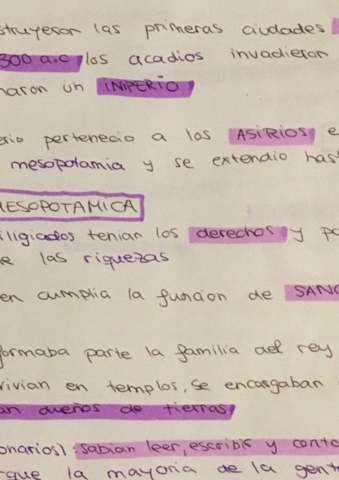 struyeron las primeras ciudades
300 a.c los acadios invadieron
maron un IMPERIO
erio pertenecio a los ASIRIOS e
mesopotamia y se extendio has
MESOPOTAMICA
iligiados tenian los derechos y po
e las riquezas
en cumplia la funcion de SANC
formaba parte la familia del rey
vivian en templos, se encargaban
an dueños de tierras
onarios): sabian leer, escribir y conta
rque la mayoria de la gent